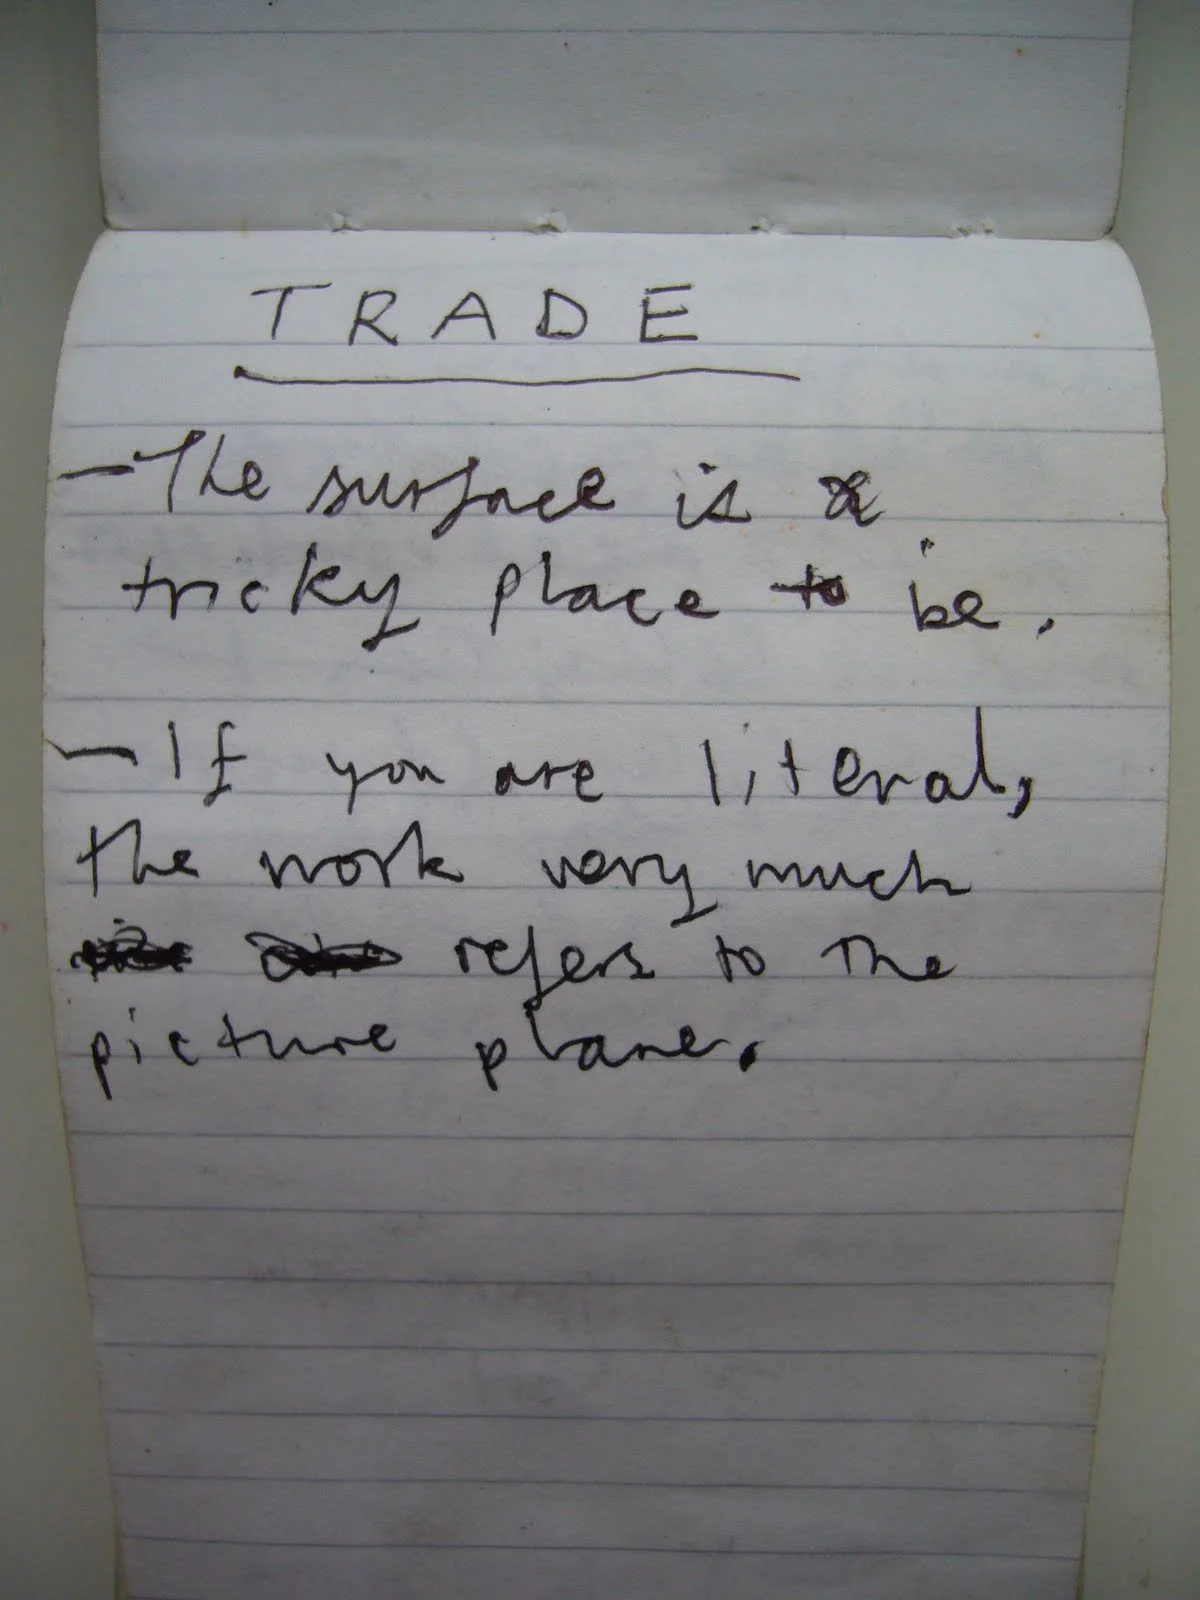 TRADE
- The surface is a
tricky place to be.
- If you are literal,
the work very much
refers to the
picture plane.